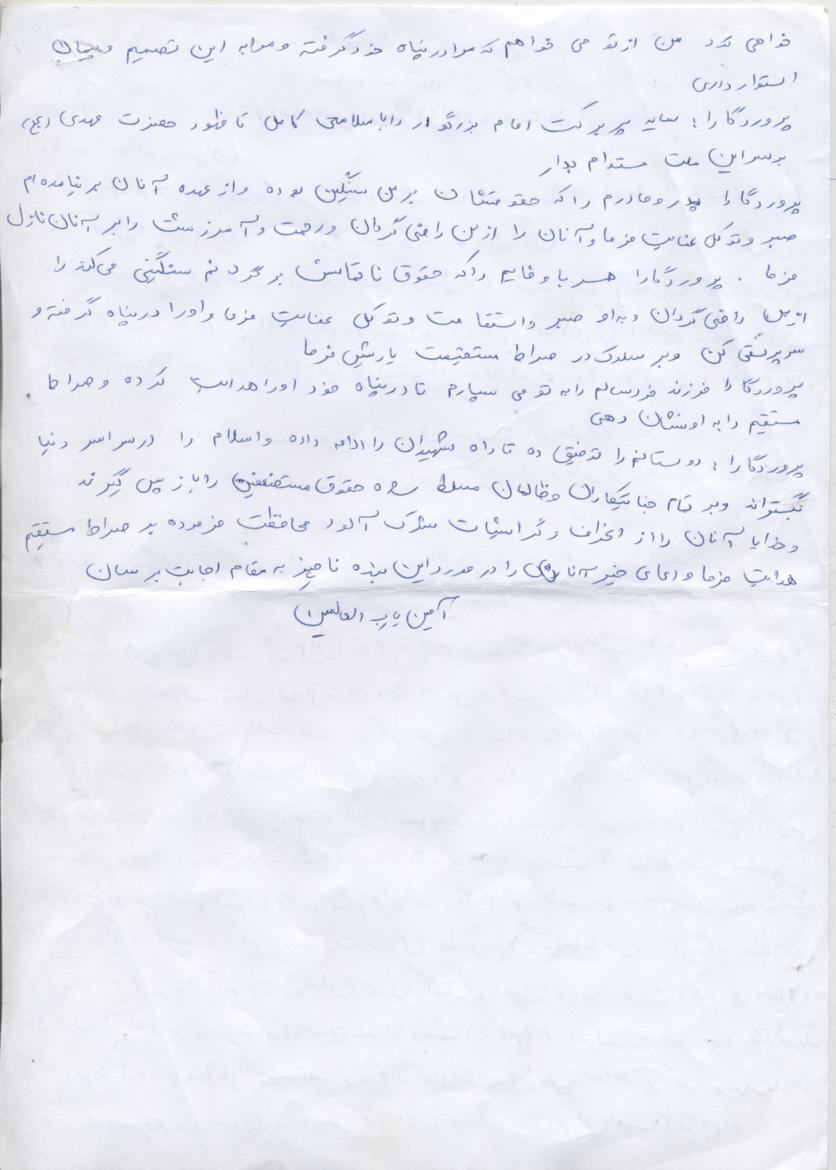 خواهی کرد من از تو می خواهم که مرا در پناه خود گرفته و مرا به این تصمیم و پیمان
استوار داری
پروردگارا؛ سایه پر برکت امام بزرگوار را با سلامتی کامل تا ظهور حضرت مهدی (عج)
بر سر این ملت مستدام بدار
پروردگارا پدر و مادرم را که حقوقشان بر من سنگین بوده و از عهده آنان بر نیامده ام
صبر و توکل عنایت فرما و آنان را از من راضی گردان و رحمت و آمرزشت را بر آنان نازل
فرما . پروردگارا همسر با وفایم را که حقوق ناتمامش بر گردنم سنگینی می کند را
از من راضی گردان و به او صبر و استقامت و توکل عنایت فرما و او را در پناه گرفته و
سرپرستی کن و بر سلوک در صراط مستقیمت یاریش فرما
پروردگارا فرزند خردسالم را به تو می سپارم تا در پناه خود او را هدایت کرده و صراط
مستقیم را به او نشان دهی
پروردگارا؛ دوستانم را توفیق ده تا راه شهیدان را ادامه داده و اسلام را در سراسر دنیا
بگسترانند و بر تمام جنایتکاران و ظالمان مسلط شده حقوق مستضعفین را باز پس گیرند
و خدایا آنان را از انحراف و گرایشات شرک آلود محافظت فرموده بر صراط مستقیم
هدایت فرما و دعای خیر آنان را در مورد این بنده ناچیز به مقام اجابت برسان
آمین یا رب العالمین